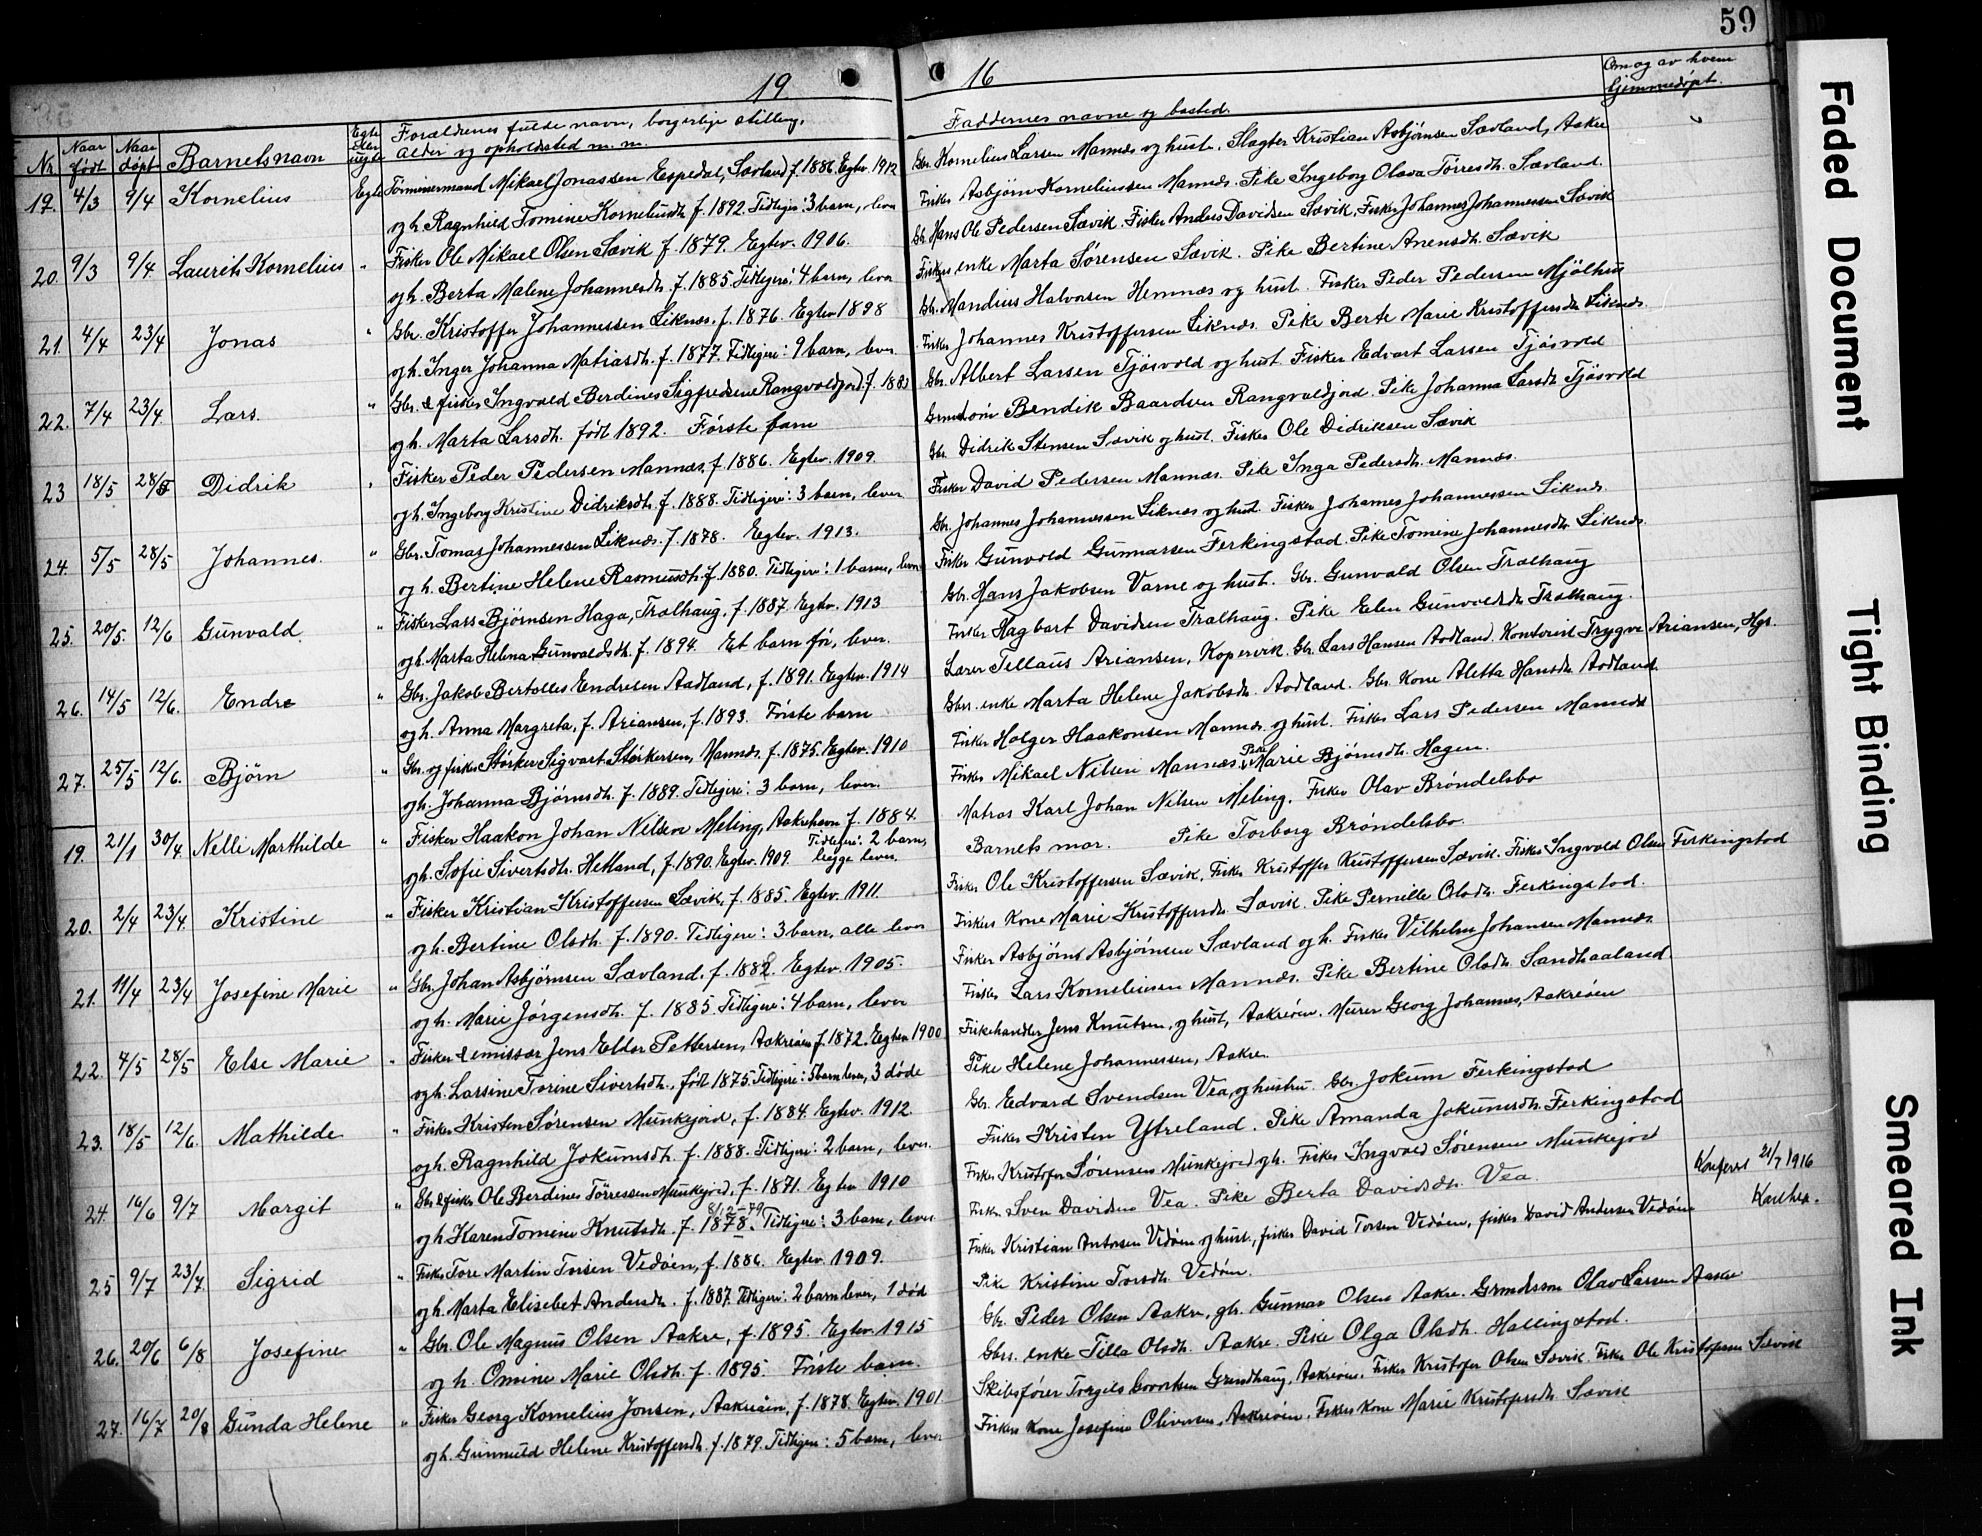 59
19
16
Nr.
Naar født
Naar døpt
Barnets navn
Egte eller uegte
Forældrenes fulde navn, borgerlige stilling,
alder og opholdssted m. m.
Faddernes navne og bosted.
Om og av hvem hjemmedøpt.
19. 4/3 9/4 Kornelius Egte Tømmermand Mikael Jonassen Espedal, Sævland f. 1886. Egtev. 1912
og h. Ragnhild Tomine Kornelusdtr. f. 1892. Tidligere: 3 barn, lever
Gbr. Kornelius Larsen Mannes og hust. Slagter Kristian Asbjørnsen Sævland, Aakre
Fisker Asbjørn Korneliussen Mannes. Pike Ingeborg Olava Tørresdtr. Sævland.
20. 9/3 9/4 Laurits Kornelius " Fisker Ole Mikael Olsen Sævik f. 1879. Egtev. 1906.
og h. Berta Malene Johannesdtr. f. 1885. Tidligere: 4 barn, lever
Gbr. Hans Ole Pedersen Sævik. Fisker Anders Davidsen Sævik, Fisker Johannes Johannessen Sævik
Fiskers enke Marta Sørensen Sævik. Pike Bertine Anensdtr. Sævik
21. 4/4 23/4 Jonas " Gbr. Kristoffer Johannessen Liknes. f. 1876. Egtev. 1898
og h. Inger Johanna Matiasdtr. f. 1877. Tidligere: 9 barn, lever.
Gbr. Mandius Halvorsen Hemnes og hust. Fisker Peder Pedersen Mjølhus
Fisker Johannes Kristoffersen Liknes. Pike Berte Marie Kristoffersdtr. Liknes
22. 7/4 23/4 Lars. " Gbr. & fisker Ingvald Berdines Sigfredsen Rangvaldjord f. 1880
og h. Marta Larsdtr. født 1892. Første barn
Gbr. Albert Larsen Tjøsvold og hust. Fisker Edvart Larsen Tjøsvold
Grmdsøn Bendik Baardsen Rangvaldjord. Pike Johanna Larsdtr. Tjøsvold
23 18/5 28/5 Didrik " Fisker Peder Pedersen Mannes, f. 1886. Egtev. 1909.
og h. Ingeborg Kristine Didriksdtr. f. 1888. Tidligere: 3 barn, lever
Gbr. Didrik Stensen Sævik og hust. Fisker Ole Didriksen Sævik
Fisker David Pedersen Mannes. Pike Inga Pedersdtr. Mannes.
24. 5/5 28/5 Johannes. " Gbr. Tomas Johannessen Liknes. f. 1878. Egtev. 1913.
og h. Bertine Helene Rasmusdtr. f. 1880. Tidligere: 1 barn, lever
Gbr. Johannes Johannessen Liknes og hust. Fisker Johannes Johannessen Liknes.
Fisker Gunvold Gunnarsen Ferkingstad. Pike Tomine Johannesdtr. Liknes
25. 20/5 12/6 Gunvald. " Fisker Lars Bjørnsen Haga, Trælhaug, f. 1887. Egtev. 1913
og h. Marta Helena Gunvaldsdtr. f. 1894. Et barn før, lever.
Gbr. Hans Jakobsen Varne og hust. Gbr. Gunvald Olsen Trælhaug
Fisker Hagbart Davidsen Trælhaug. Pike Elen Gunvaldsdtr. Trælhaug.
26. 14/5 12/6. Endre " Gbr. Jakob Bertolles Endresen Aadland, f. 1891. Egtev. 1914
og h. Anna Margreta, f. Ariansen, f. 1893. Første barn
Lærer Tellaus Ariansen, Kopervik. Gbr. Lars Hansen Aadland. Kontorist Trygve Ariansen, Hgs.
Gbrs. enke Marta Helene Jakobsdtr. Aadland. Gbr. kone Aletta Hansdtr. Aadland
27. 25/5 12/6. Bjørn " Gbr. og fisker Størker Sigvart Størkersen, Mannes. f. 1875. Egtev. 1910
og h. Johanna Bjørnsdtr. f. 1889. Tidligere: 3 barn, lever.
Fisker Holger Haakonsen Mannes og hust. Fisker Lars Pedersen Mannes
Fisker Mikael Nilsen Mannes. Pike Marie Bjørnsdtr. Hagen.
19. 21/1 30/4 Nelli Marthilde " Fisker Haakon Johan Nilsen Meling, Aakrehavn f. 1884.
og h. Sofie Sivertsdtr. Hetland, f. 1890. Egtev. 1909. Tidligere: 2 barn, begge lever.
Matros Karl Johan Nilsen Meling. Fisker Olav Brøndelsbo
Barnets mor. Pike Torborg Brøndelsbo.
20. 2/4 23/4. Kristine " Fisker Kristian Kristoffersen Sævik, f. 1885. Egtev. 1911.
og h. Bertine Olsdtr. f. 1890. Tidligere: 3 barn, alle lever
Fisker Ole Kristoffersen Sævik. Fisker Kristoffer Kristoffersen Sævik. Fisker Ingvald Olsen Ferkingstad
Fiskers kone Marie Kristoffersdtr. Sævik. Pike Pernille Olsdtr. Ferkingstad.
21. 11/4 23/4 Josefine Marie " Gbr. Johan Asbjørnsen Sævland. f. 1882. Egtev. 1905.
og h. Marie Jørgensdtr. f. 1885. Tidligere: 4 barn, lever
Fisker Asbjørn Asbjørnsen Sævland og h. Fisker Vilhelm Johansen Mannes
Fisker Lars Korneliusen Mannes. Pike Bertine Olsdtr. Sandhaaland
22. 4/5 28/5 Else Marie " Fisker & emissær Jens Eldor Pettersen, Aakreøen f. 1872. Egtev. 1900
og h. Larsine Torine Sivertsdtr., født 1875. Tidligere: 5 barn lever, 3 døde
Fiskehandler Jens Knutsen, og hust, Aakreøen. Murer Georg Johannes, Aakreøen
Pike Helene Johannessen, Aakre.
23. 18/5 12/6. Mathilde " Fisker Kristen Sørensen Munkejord, f. 1884. Egtev. 1912.
og h. Ragnhild Jokumsdtr. f. 1888. Tidligere: 2 barn, lever.
Gbr. Edvard Svendsen Vea, og hustru. Gbr. Jokum Ferkingstad
Fisker Kristen Ytreland. Pike Amanda Jokumsdtr. Ferkingstad
24. 16/6 9/7 Margit " Gbr. & fisker Ole Berdines Tørressen Munkejord, f. 1871. Egtev. 1910
og h. Karen Tomine Knutsdtr. f. 1878. 8/12-79 Tidligere: 3 barn, lever
Fisker Kristofer Sørensen Munkejord og h. Fisker Ingvald Sørensen Munkejord
Fisker Sven Davidsen Vea. Pike Berta Davidsdtr. Vea.
Konferert 21/7 1916
25 9/7 23/7. Sigrid " Fisker Tore Martin Torsen Vedøen, f. 1886. Egtev. 1909.
og h. Marta Elisebet Andersdtr. f. 1887. Tidligere: 2 barn lever, 1 død
Fisker Kristian Antonsen Vedøen og hust, fisker David Torsen Vedøen, fisker David Andersen Vedøen
Pike Kristine Torsdtr. Vedøen.
26. 20/6 6/8 Josefine " Gbr. Ole Magnus Olsen Aakre, f. 1895. Egtev. 1915
og h. Omine Marie Olsdtr. f. 1895. Første barn.
Gbr. Peder Olsen Aakre, gbr. Gunnar Olsen Aakre. Grmdsson Olav Larsen Aakre
Gbrs. enke Tilla Olsdtr. Aakre. Pike Olga Olsdtr. Hallingstad.
27. 16/7 20/8 Gunda Helene " Fisker Georg Kornelius Jonsen, Aakreøen, f. 1878. Egtev. 1901.
og h. Gunnuld Helene Kristoffersdtr. f. 1879. Tidligere: 5 barn, lever
Skibsfører Torgils Govertsen Grindhaug, Aakreøen. Fisker Kristofer Olsen Sævik. Fisker Ole Kristofersen Sævik
Fiskers kone Josefine Oliversen, Aakreøen. Fiskers kone Marie Kristofersdtr. Sævik
Faded Document
Tight Binding
Smeared Ink